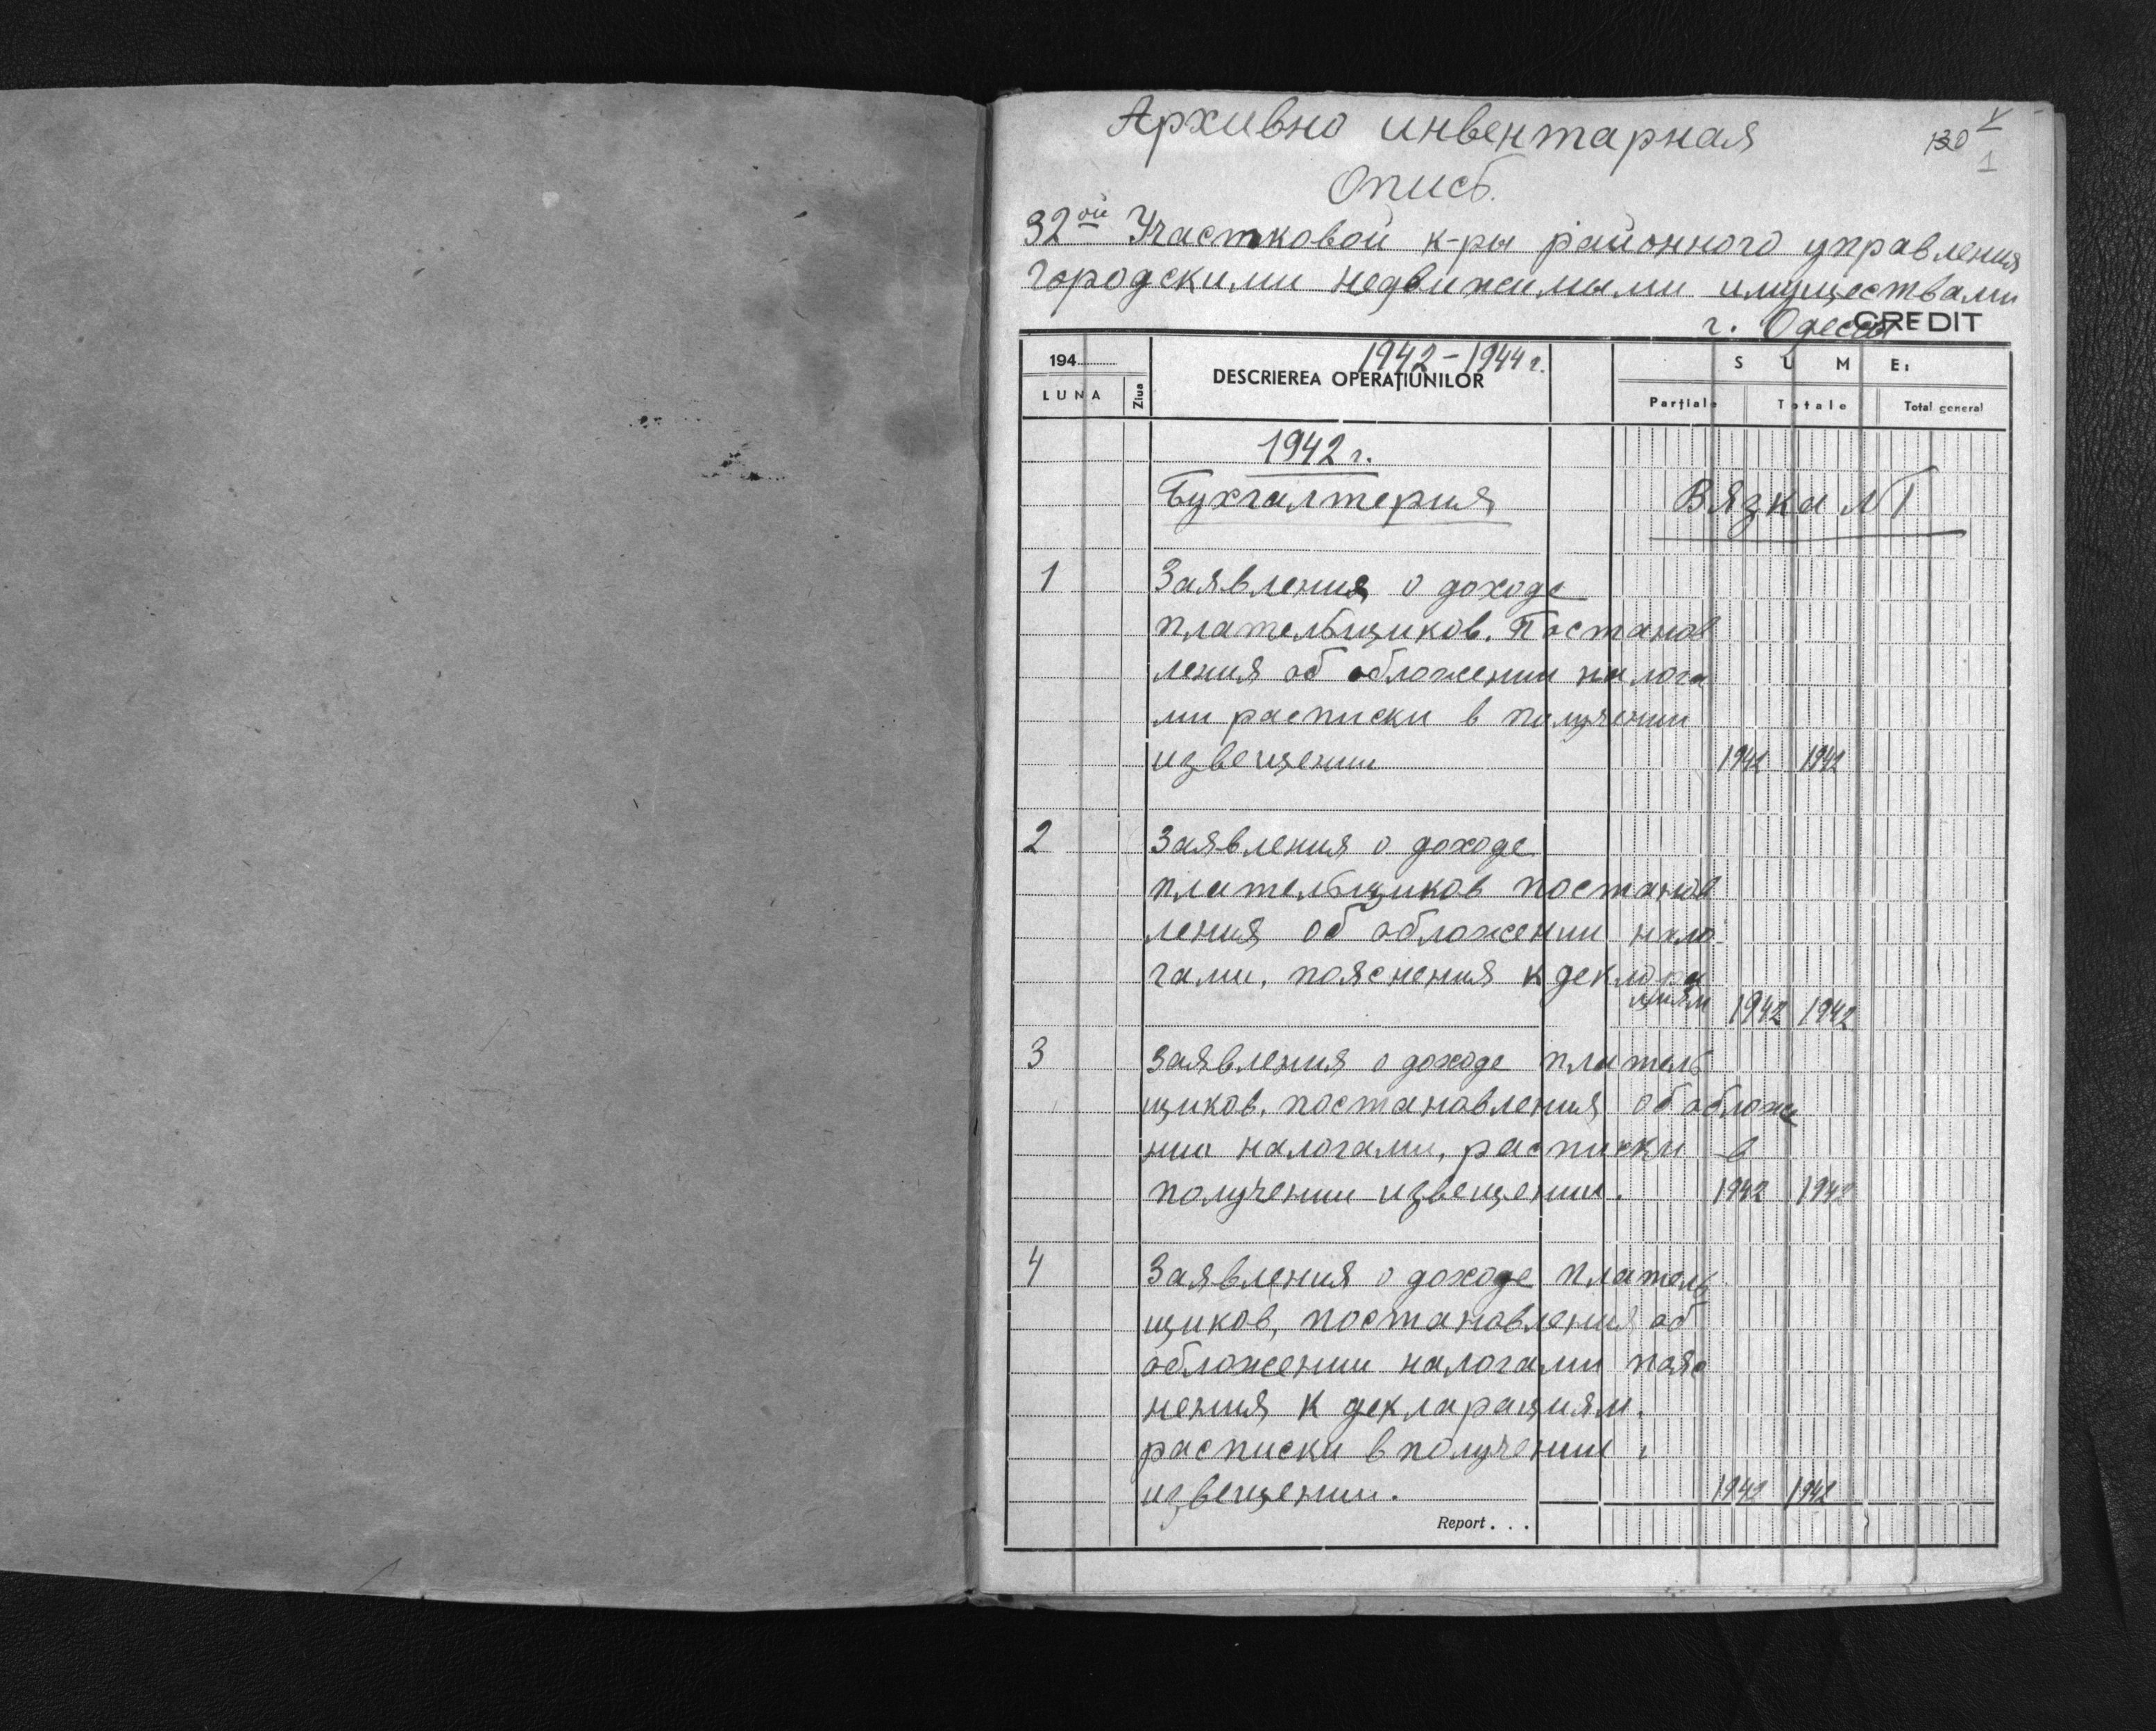 Архивно инвентарная
130
1
Опись.
32ой Участковой к-ры районного управления
городскими недвижимыми имуществами
г. Одессы
CREDIT
1942-1944 г.
194
DESCRIEREA OPERAȚIUNILOR
S U M E:
LUNA
Ziua
Parțiale
Totale
Total general
1942 г.
Бухгалтерия
Вязка №1
1 Заявления о доходе
плательщиков. Постанов
ления об обложении налога
ми расписки в получении
извещении 1942 1942
2 Заявления о доходе
плательщиков постанов
ления об обложении нало
гами, пояснения к деклара
циям 1942 1942
3 Заявления о доходе платель
щиков, постановления об обложе
нии налогами, расписки в
получении извещении. 1942 1942
4 Заявления о доходе платель
щиков, постановления об
обложении налогами пояс
нения к декларациям.
расписки в получении
извещении. 1942 1942
Report . . .